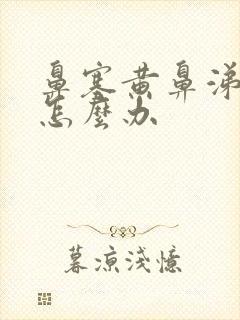 鼻塞黄鼻涕
怎麼办
暮凉淺憶